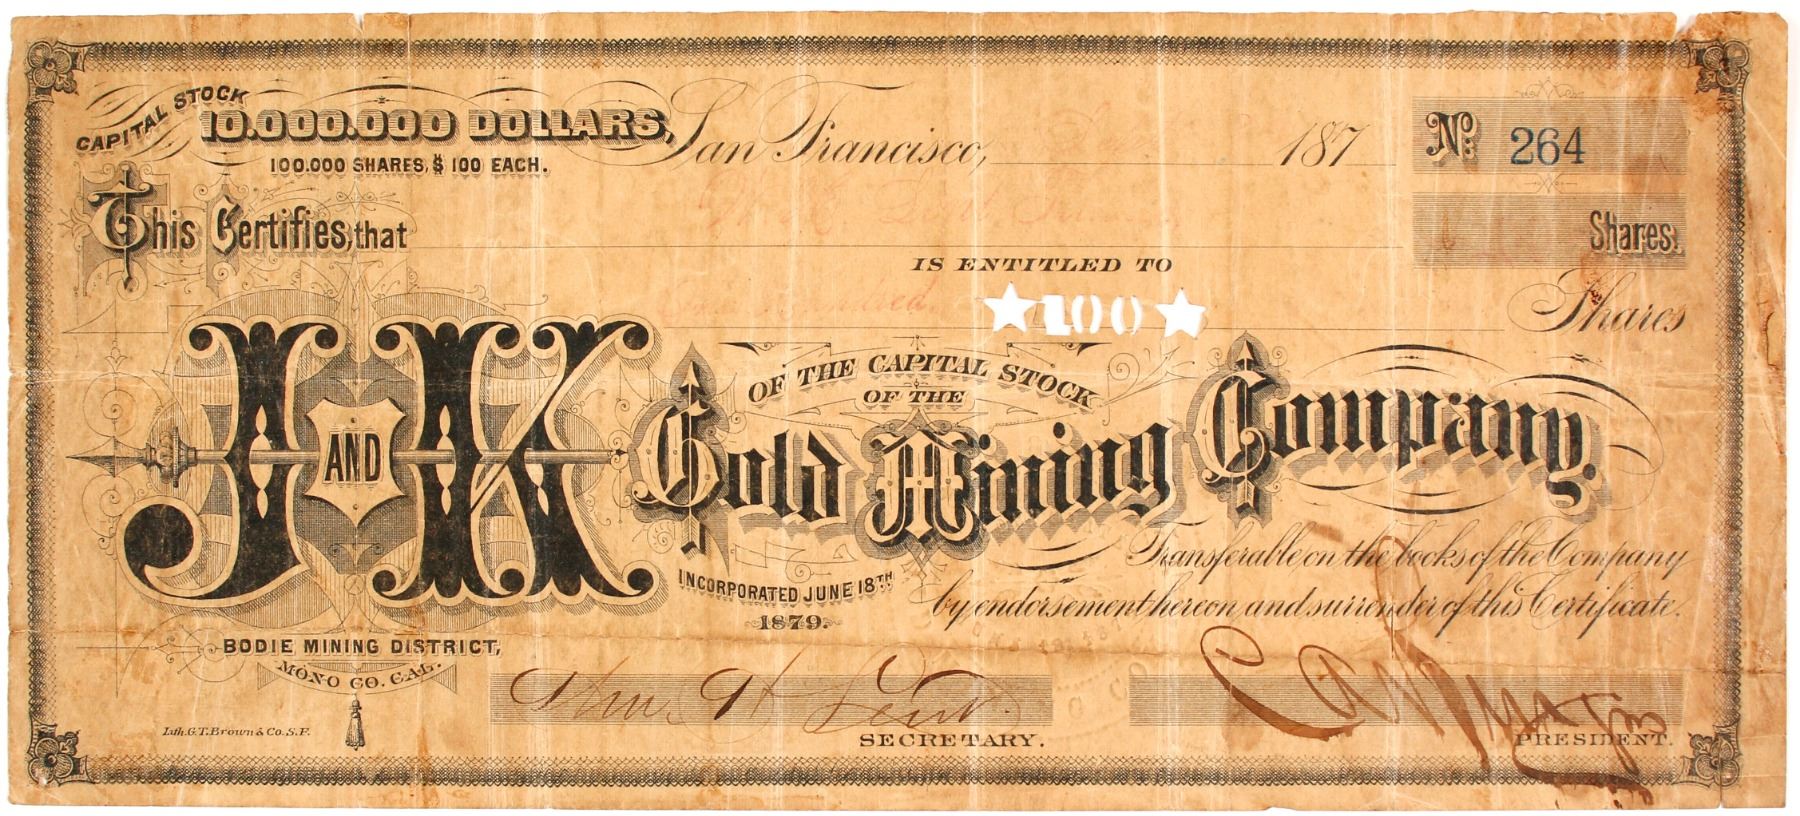 CAPITAL STOCK
10.000.000 DOLLARS,
100.000 SHARES, $ 100 EACH.
San Francisco, 187
No. 264
This Certifies, that
Shares.
IS ENTITLED TO
One Hundred ★100★ Shares
J AND K
OF THE CAPITAL STOCK
OF THE
Gold Mining Company.
INCORPORATED JUNE 18TH
1879.
Transferable on the books of the Company
by endorsement hereon and surrender of this Certificate.
BODIE MINING DISTRICT,
MONO CO. CAL.
Wm. H. Lent.
SECRETARY.
PRESIDENT.
Lith. G.T. Brown & Co. S.F.